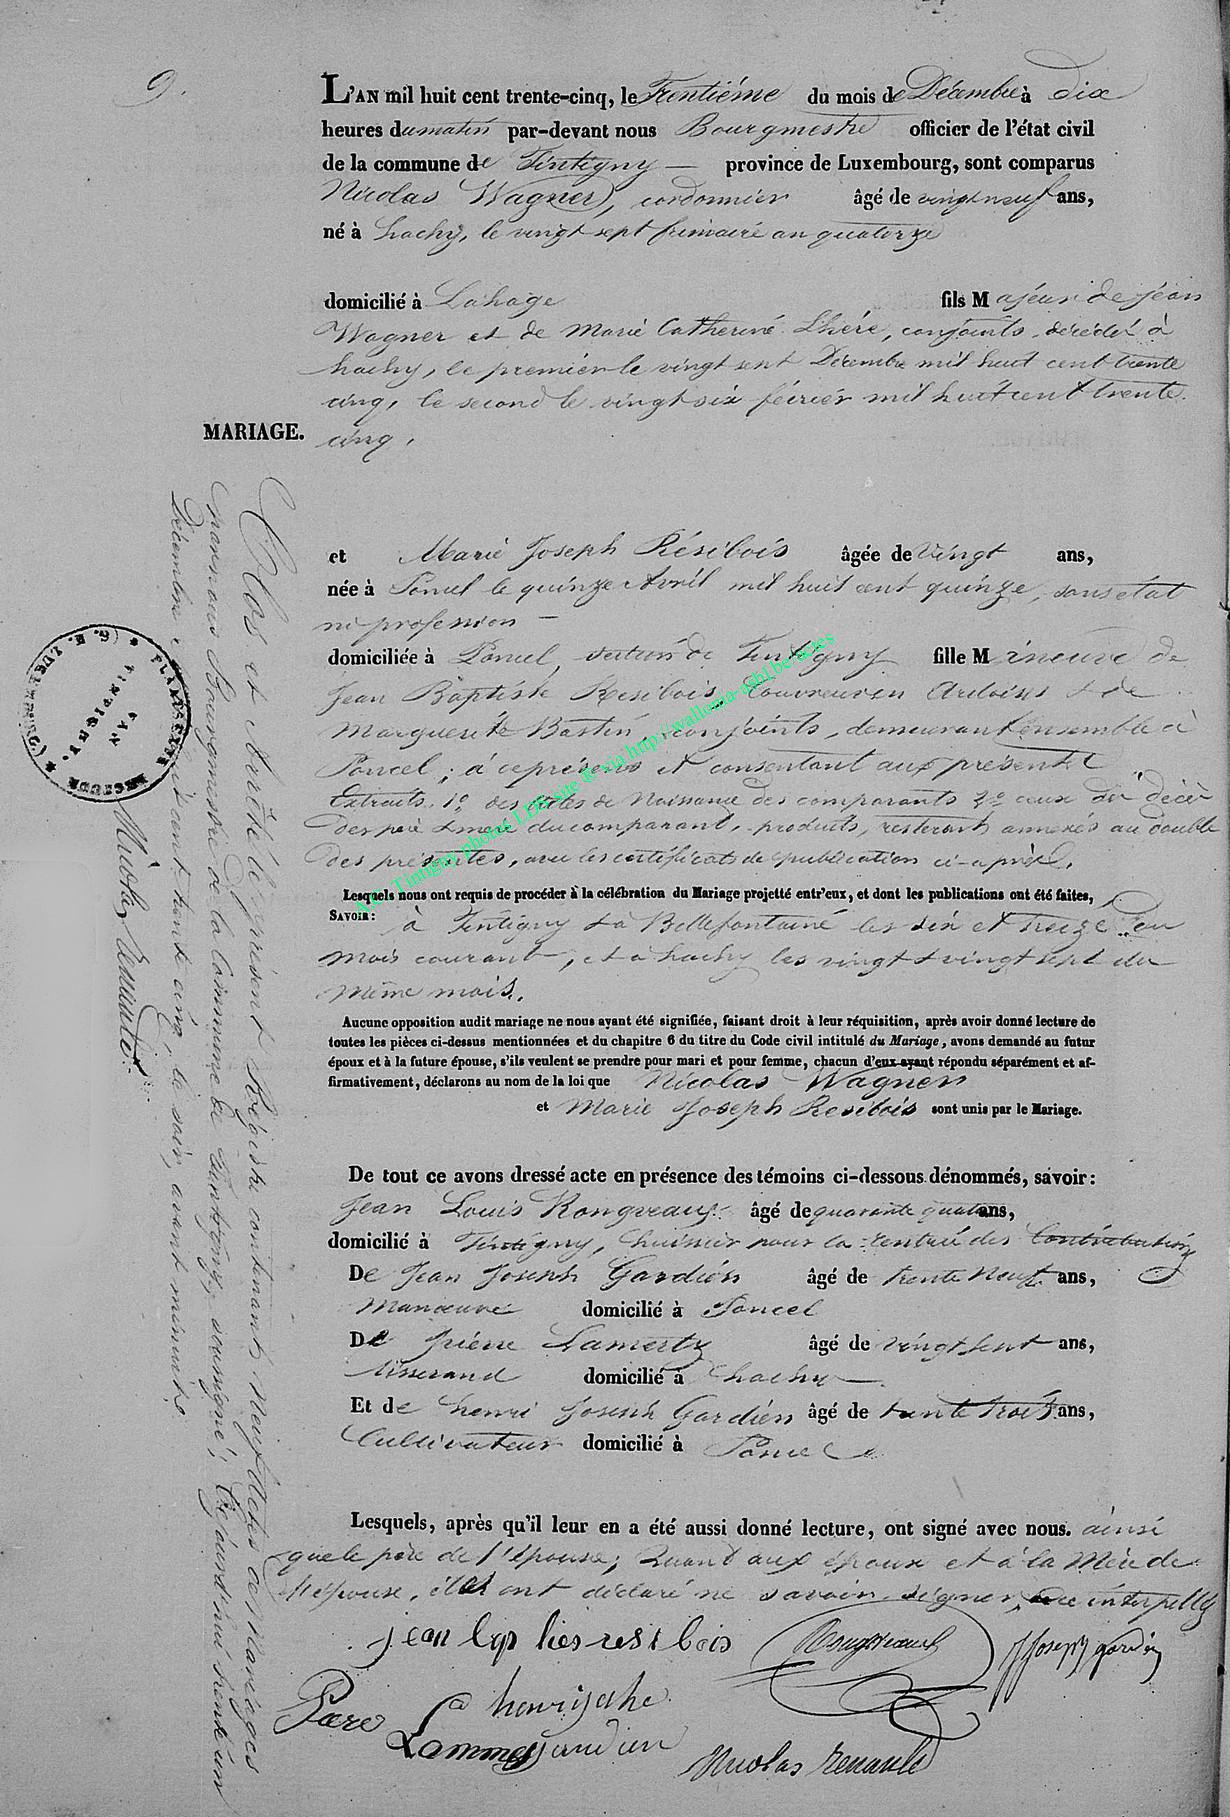 9.
L'AN mil huit cent trente-cinq, le Trentiéme du mois de Décembre à dix
heures du matin par-devant nous Bourgmestre officier de l'état civil
de la commune de Tintigny — province de Luxembourg, sont comparus
Nicolas Wagner, cordonnier âgé de vingt neuf ans,
né à hachy, le vingt sept frimaire an quatorze
domicilié à Lahage fils Majeur de jean
Wagner et de Marie Catherine Lhéré, conjoints décédés à
hachy, le premier le vingt sept Décembre mil huit cent trente
cinq, le second le vingt six février mil huit cent trente
cinq.
MARIAGE.
et Marie Joseph Résibois âgée de Vingt ans,
née à Poncel le quinze Avril mil huit cent quinze, sans état
ni profession —
domiciliée à Poncel, section de Tintigny fille Mineure de
Jean Baptiste Resibois, Couvreur en Ardoises & de
Marguerite Bastin, conjoints, demeurant ensemble à
Poncel; à ce présents et consentant aux présentes
Extraits 1o des actes de Naissance des comparants 2o ceux de décès
des père & mère du comparant, produits, resteront annexés au double
des présentes, avec les certificats de publication ci-après.
Lesquels nous ont requis de procéder à la célébration du Mariage projetté entr'eux, et dont les publications ont été faites,
SAVOIR: à Tintigny & à Bellefontaine les six et treize du
mois courant, et à hachy les vingt & vingt sept du
même mois.
Aucune opposition audit mariage ne nous ayant été signifiée, faisant droit à leur réquisition, après avoir donné lecture de
toutes les pièces ci-dessus mentionnées et du chapitre 6 du titre du Code civil intitulé du Mariage, avons demandé au futur
époux et à la future épouse, s'ils veulent se prendre pour mari et pour femme, chacun d'eux ayant répondu séparément et af-
firmativement, déclarons au nom de la loi que Nicolas Wagner
et Marie Joseph Resibois sont unis par le Mariage.
De tout ce avons dressé acte en présence des témoins ci-dessous dénommés, savoir:
Jean Louis Rongveaux âgé de quarante quatre ans,
domicilié à Tintigny, huissier pour la rentrée des Contributions
De Jean Joseph Gardien âgé de trente Neuf ans,
Manœuvre domicilié à Poncel
De pierre Lamertz âgé de vingt sept ans,
tisserand domicilié à hachy —
Et de henri Joseph Gardien âgé de trente trois ans,
Cultivateur domicilié à Poncel
Lesquels, après qu'il leur en a été aussi donné lecture, ont signé avec nous. ainsi
que le père de l'épouse; Quant aux époux et à la Mère de
l'épouse, ils ont déclaré ne savoir signer, de ce interpellés
jean bap ties resibois
Rongveaux
JJoseph gardien
henri
Lammer
gardien
Nicolas renauld
Clos et Arrêté le présent Registre contenant Neuf Actes de Mariages
par nous Bourgmestre de la Commune de Tintigny, soussigné; Ce jourd'hui trente un
Décembre mil huit cent trente cinq, le soir, avant minuit.
Nicolas renauld.
A.G. Tintigny photos LDS site & via http://wallonia-asbl.be/actes